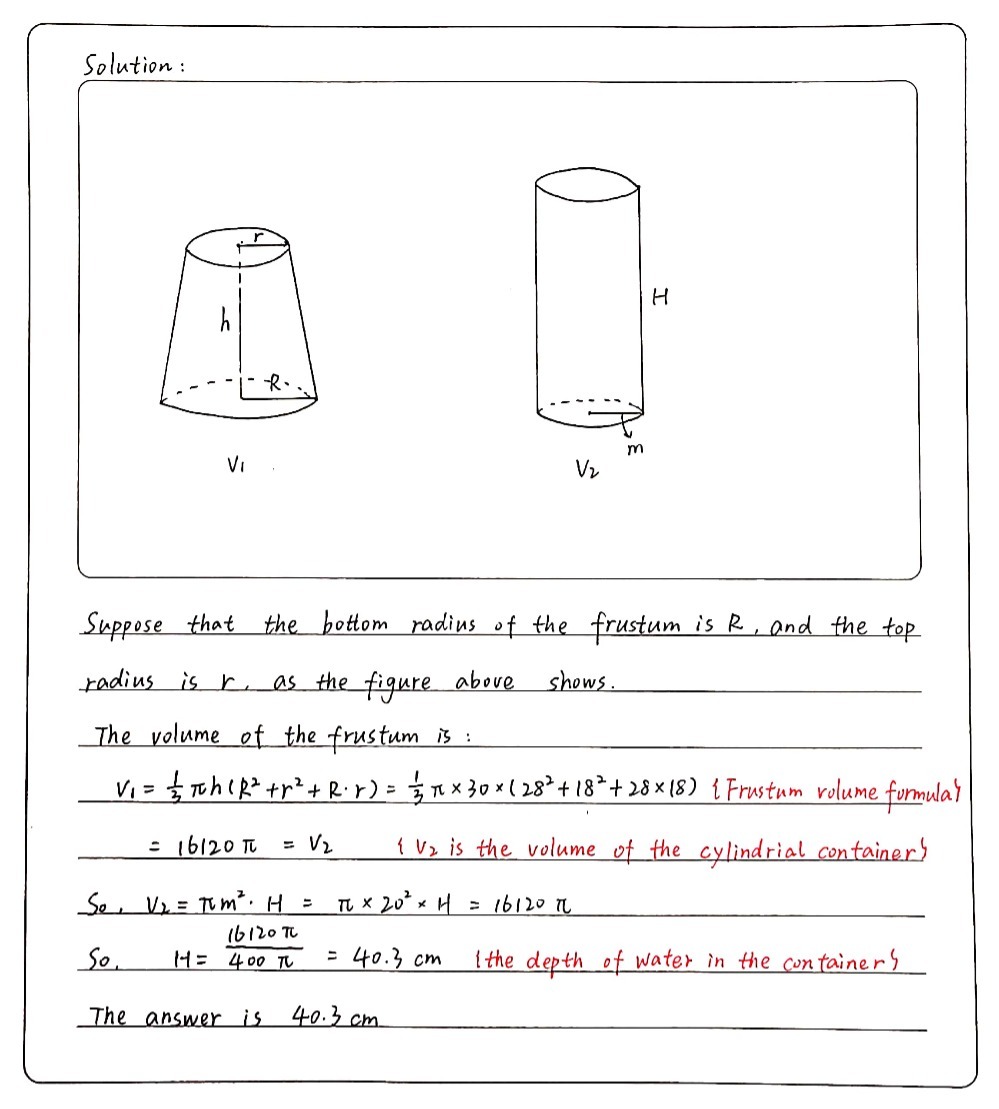 Solution:
r
h
R
V₁
H
m
V₂
Suppose that the bottom radius of the frustum is R, and the top
radius is r, as the figure above shows.
The volume of the frustum is:
V₁ = 1/3 πh(R²+r²+R·r) = 1/3 π×30×(28²+18²+28×18) {Frustum volume formula}
= 16120π = V₂ {V₂ is the volume of the cylindrial container}
So, V₂ = πm²·H = π×20²×H = 16120π
So, H = 16120π/400π = 40.3 cm {the depth of water in the container}
The answer is 40.3 cm